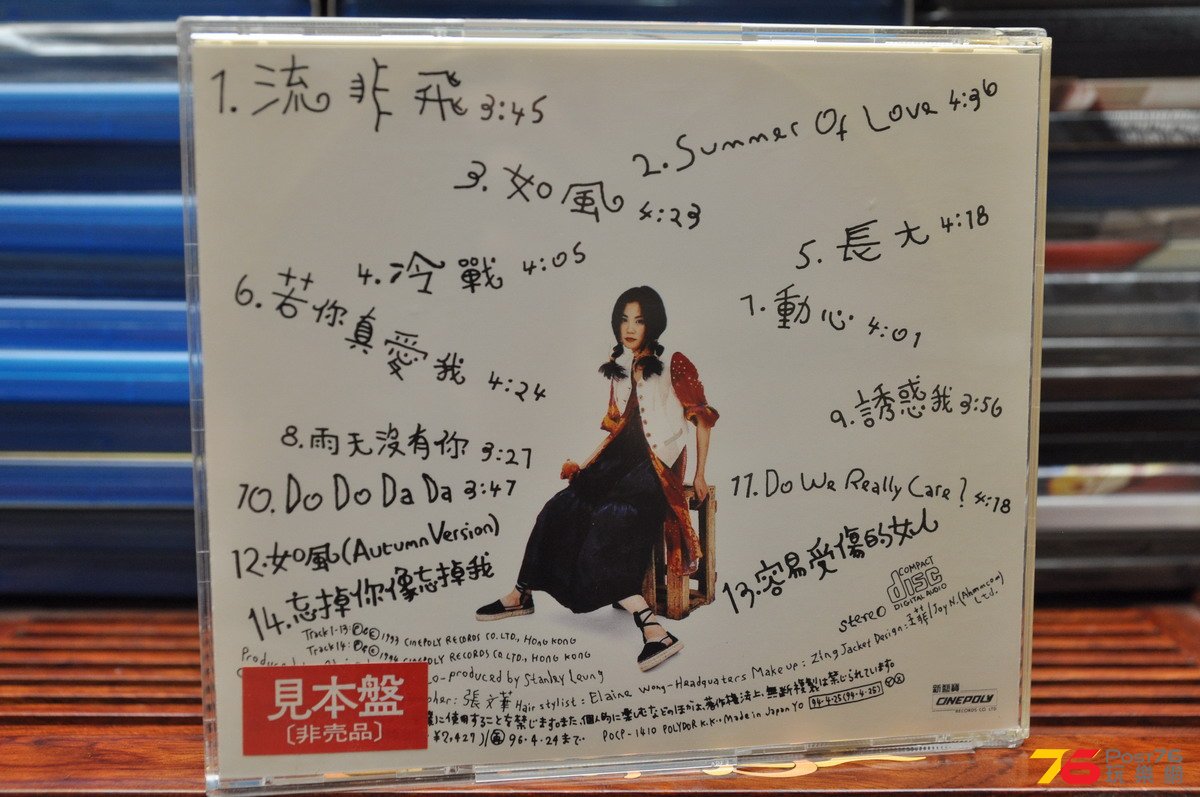 1. 流非飛 3:45
2. Summer Of Love 4:36
3. 如風 4:23
4. 冷戰 4:05
5. 長大 4:18
6. 若你真愛我 4:24
7. 動心 4:01
8. 雨天沒有你 3:27
9. 誘惑我 3:56
10. Do Do Da Da 3:47
11. Do We Really Care? 4:18
12. 如風(Autumn Version)
13. 容易受傷的女人
14. 忘掉你像忘掉我
COMPACT
disc
DIGITAL AUDIO
stereo
Track 1-13: Ⓟ&Ⓒ 1993 CINEPOLY RECORDS CO. LTD., HONG KONG
Track 14: Ⓟ&Ⓒ 1994 CINEPOLY RECORDS CO. LTD., HONG KONG
Co-produced by Stanley Leung
Hair stylist: Elaine Wong-Headquaters Make up: Zing Jacket Design: 王菲/Joy N. (Ahmmcom) Ltd.
に使用することを禁じます。また、個人的に楽しむなどのほかは、著作権法上、無断複製は禁じられています。
¥2,427)/ 96.4.24まで.
POCP-1410 POLYDOR K.K.. Made in Japan Yo 94・4・25(94・4・25)
見本盤
〔非売品〕
新藝寶
CINEPOLY
RECORDS CO. LTD.
76 Post76
玩樂網